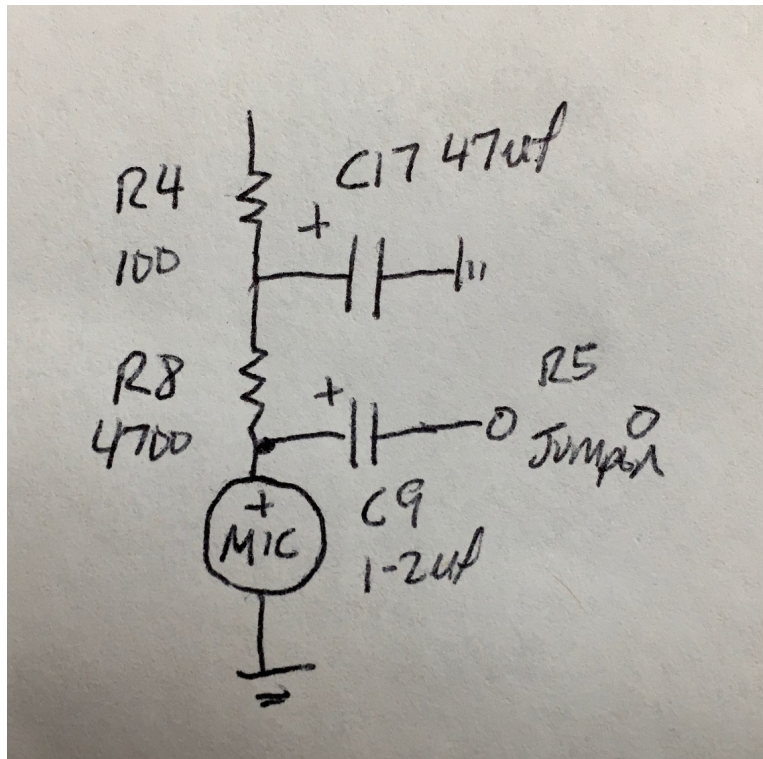 R4
100
C17 47uf
+
R8
4700
+
R5
O
Jumper
+
MIC
C9
1-2uf